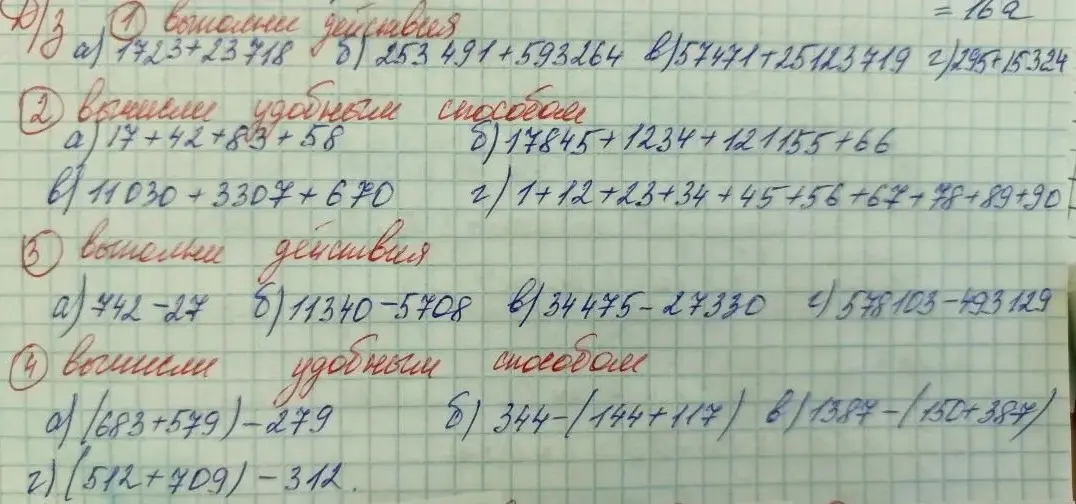 = 16а
Д/з ① выполни действия
а) 1723+23718 б) 253 491+593264 в) 57471+25123719 г) 295+15324
② вычисли удобным способом
а) 17+42+83+58 б) 17845+1234+121155+66
в) 11030+3307+670 г) 1+12+23+34+45+56+67+78+89+90
③ выполни действия
а) 742-27 б) 11340-5708 в) 34475-27330 г) 578103-493129
④ вычисли удобным способом
а) (683+579)-279 б) 344-(144+117) в) 1387-(150+387)
г) (512+709)-312.